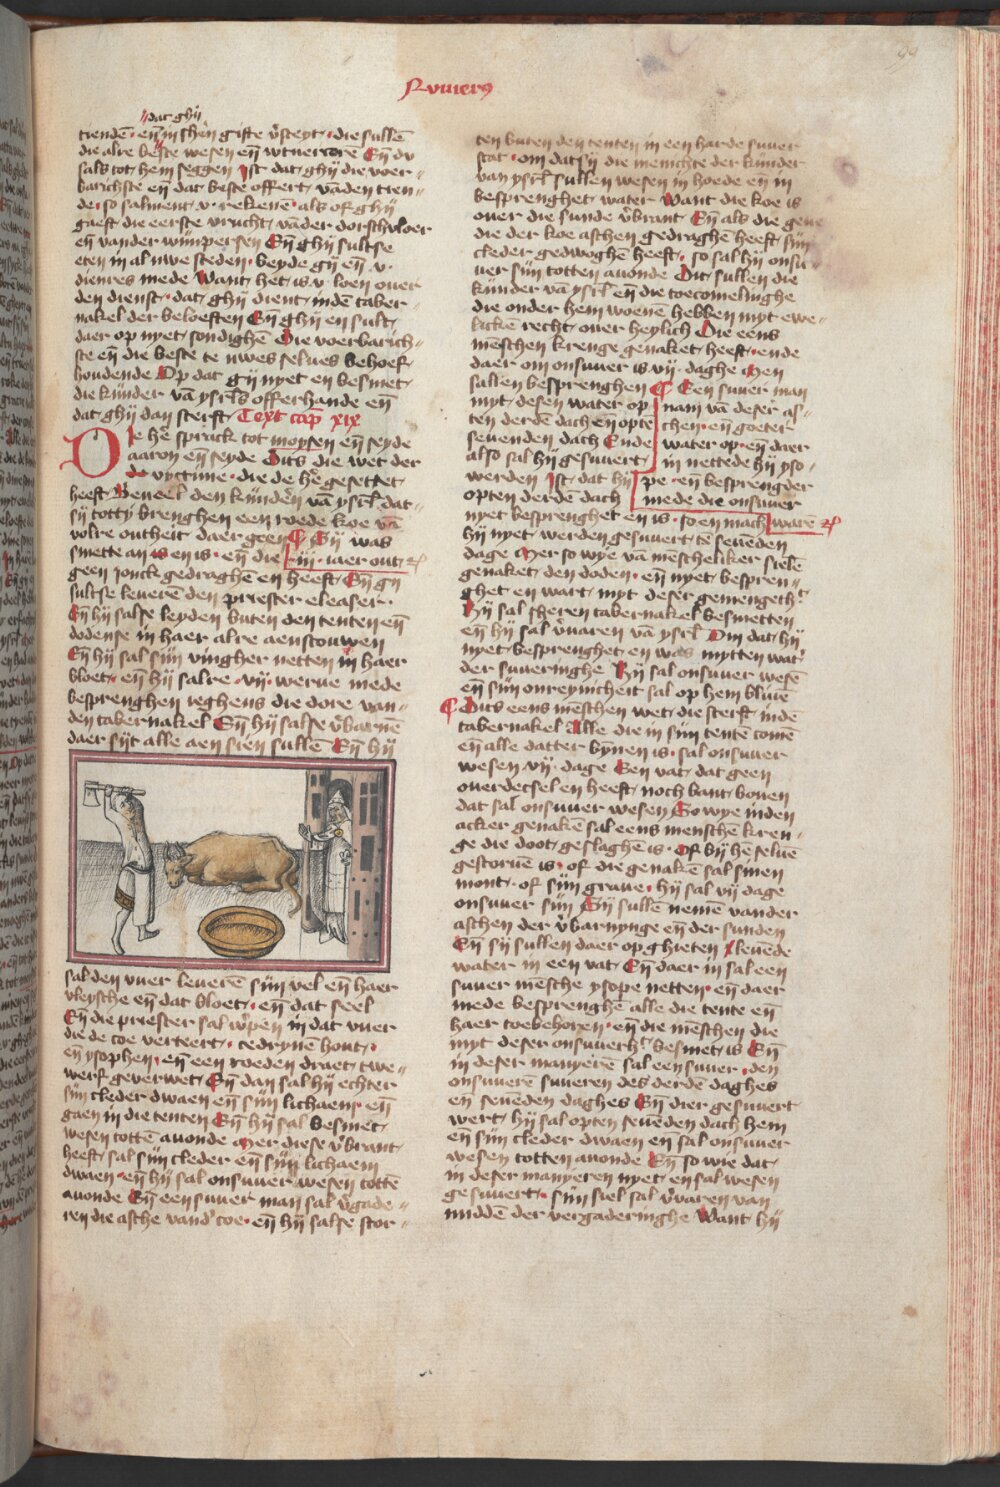 99
Numerus
dat ghij
tiendē · eñ in shēn gifte v̄steyt · die sullē
die alre beste wesen eñ wtuercore Eñ du
sals tot hem seggen Ist dat ghij die voer=
barichste eñ dat beste offert vāden tien=
de · so salment v · rekenē · als of ghij
gaeft die eerste vrucht vāder dorschvloer
eñ vander wijnpersen Eñ ghij sultse
eten in al uwe steden · beyde gij eñ v ·
dienres mede Want het is v · loen ouer
den dienst · dat ghij dient indē taber=
nakel der beloeften Eñ ghij en sult
daer op nyet sondighē Die voerbarich=
ste eñ die beste te uwes selues behoef
houdende Op dat gij nyet en besmet
die kijnder vā ysrl̄s offerhande eñ
dat ghij dan sterft Text cap̄ xix
Die he sprack tot moysen eñ seyde
aaron eñ seyde Dits die wet der
de vyctime · die de he gesettet
heeft Beueel den kijnderē vā ysrl̄ dat
sij totty brenghen een roede koe vā
volre outheit daer geen ¶ Sij was
smette an is en is · eñ die iij · iaer out
geen jonck gedraghē en heeft Eñ gij
sultse leueren den priester eleaser ·
Eñ hij salse leyden buten den tenten eñ
dodense in haer alre aenscouwen
Eñ hij sal sijn vingher netten in haer
bloet · eñ hij salre · vij · werue mede
besprenghen ieghens die dore van=
den tabernakel Eñ hij salse v̄barnē
daer sijt alle aen sien sullē Eñ hij
sal den vuer leuerē sijn vel eñ haer
vleysche eñ dat bloet · eñ dat feel
Eñ die priester sal w̄pen in dat vuer
die de coe verteert · cedrynē hout ·
eñ ysophen · eñ een roeden draet twe=
werf geverwet Eñ dan sal hij echter
sijn cleder dwaen eñ sijn lichaem eñ
gaen in die tenten Eñ hij sal besmet
wesen tottē auonde Mer diese v̄brant
heeft sal sijn cleder eñ sijn lichaem
dwaen · eñ hij sal onsuuer wesen tottē
auonde Eñ een suuer man sal v̄gade=
ren die asche vand' coe · eñ hij salse stor=
ten buten den tenten in een harde suuer
stat · om dat sij die menichte der kijnder
van ysrl̄ sullen wesen in hoede eñ in
besprenghet water Want die koe is
ouer die sunde v̄brant Eñ als die gene
die der koe asschen gedraghē heeft sijn
cleder gedwoghē heeft · so sal hij onsu=
uer sijn totten auonde Dit sullen die
kijnder vā ysrl̄ eñ die toecomelinghe
die onder hem woenē hebben myt ewe=
liken recht ouer heylich Die eens
menschen krenge genaket heeft · ende
daer om onsuuer is vij · daghe Men
sallen besprenghen ¶ Een suuer man
myt desen water op nam vā deser as=
ten derdē dach eñ optē chen · eñ goeter
seuenden dach Ende water op · eñ daer
also sal hij gesuuert in nettede hij yso=
werden Ist dat hij pe · eñ besprengder
opten derdē dach mede die onsuuer
nyet besprenghet en is · so en mach warē
hij nyet werden gesuuert te seuēden
dage Mer so wye vā mēscheliker sielē
genaket den doden · eñ nyet bespren=
ghet en wart myt deser gemengeth'
Hij sal sheren tabernakel besmetten
eñ hij sal v̄uaren vā ysrl̄ Om dat hij
nyet besprenghet en was mytten wat'
der suueringhe Hij sal onsuuer wesē
eñ sijn onreynicheit sal op hem bliuē
¶ Dits eens mēschen wet die sterft indē
tabernakel Alle die in sijn tentē comē
eñ alle datter bynnen is · sal onsuuer
wesen vij · dage Een vat dat geen
ouerdecsel en heeft noch bant bouen
dat sal onsuuer wesen So wye inden
acker genakē sal eens menschē kren=
ge die doot geslaghē is · Of bij hē seluē
gestoruē is · of die genakē sal sinen
mont · of sijn graue · hij sal vij dage
onsuuer sijn Sij sullē nemē vander
asschen der v̄barnynge eñ der sunden
Eñ sij sullen daer op ghieten leuēde
water in een vat Eñ daer in sal een
suuer mēsche ysope netten · eñ daer
mede besprenghē alle die tente eñ
haer toebehoren · eñ die mēschen die
myt deser onsuuerh' besmet is Eñ
in deser manyerē sal een suuer · den
onsuuerē suueren des derdē daghes
eñ seuēden daghes Eñ dier gesuuert
wert hij sal opten seuēden dach hem
eñ sijn cleder dwaen en sal onsuuer
wesen totten auonde Eñ so wie dat
in deser manyeren nyet en sal wesen
gesuuert · sijn siel sal v̄varen van
midden der vergaderinghe Want hij